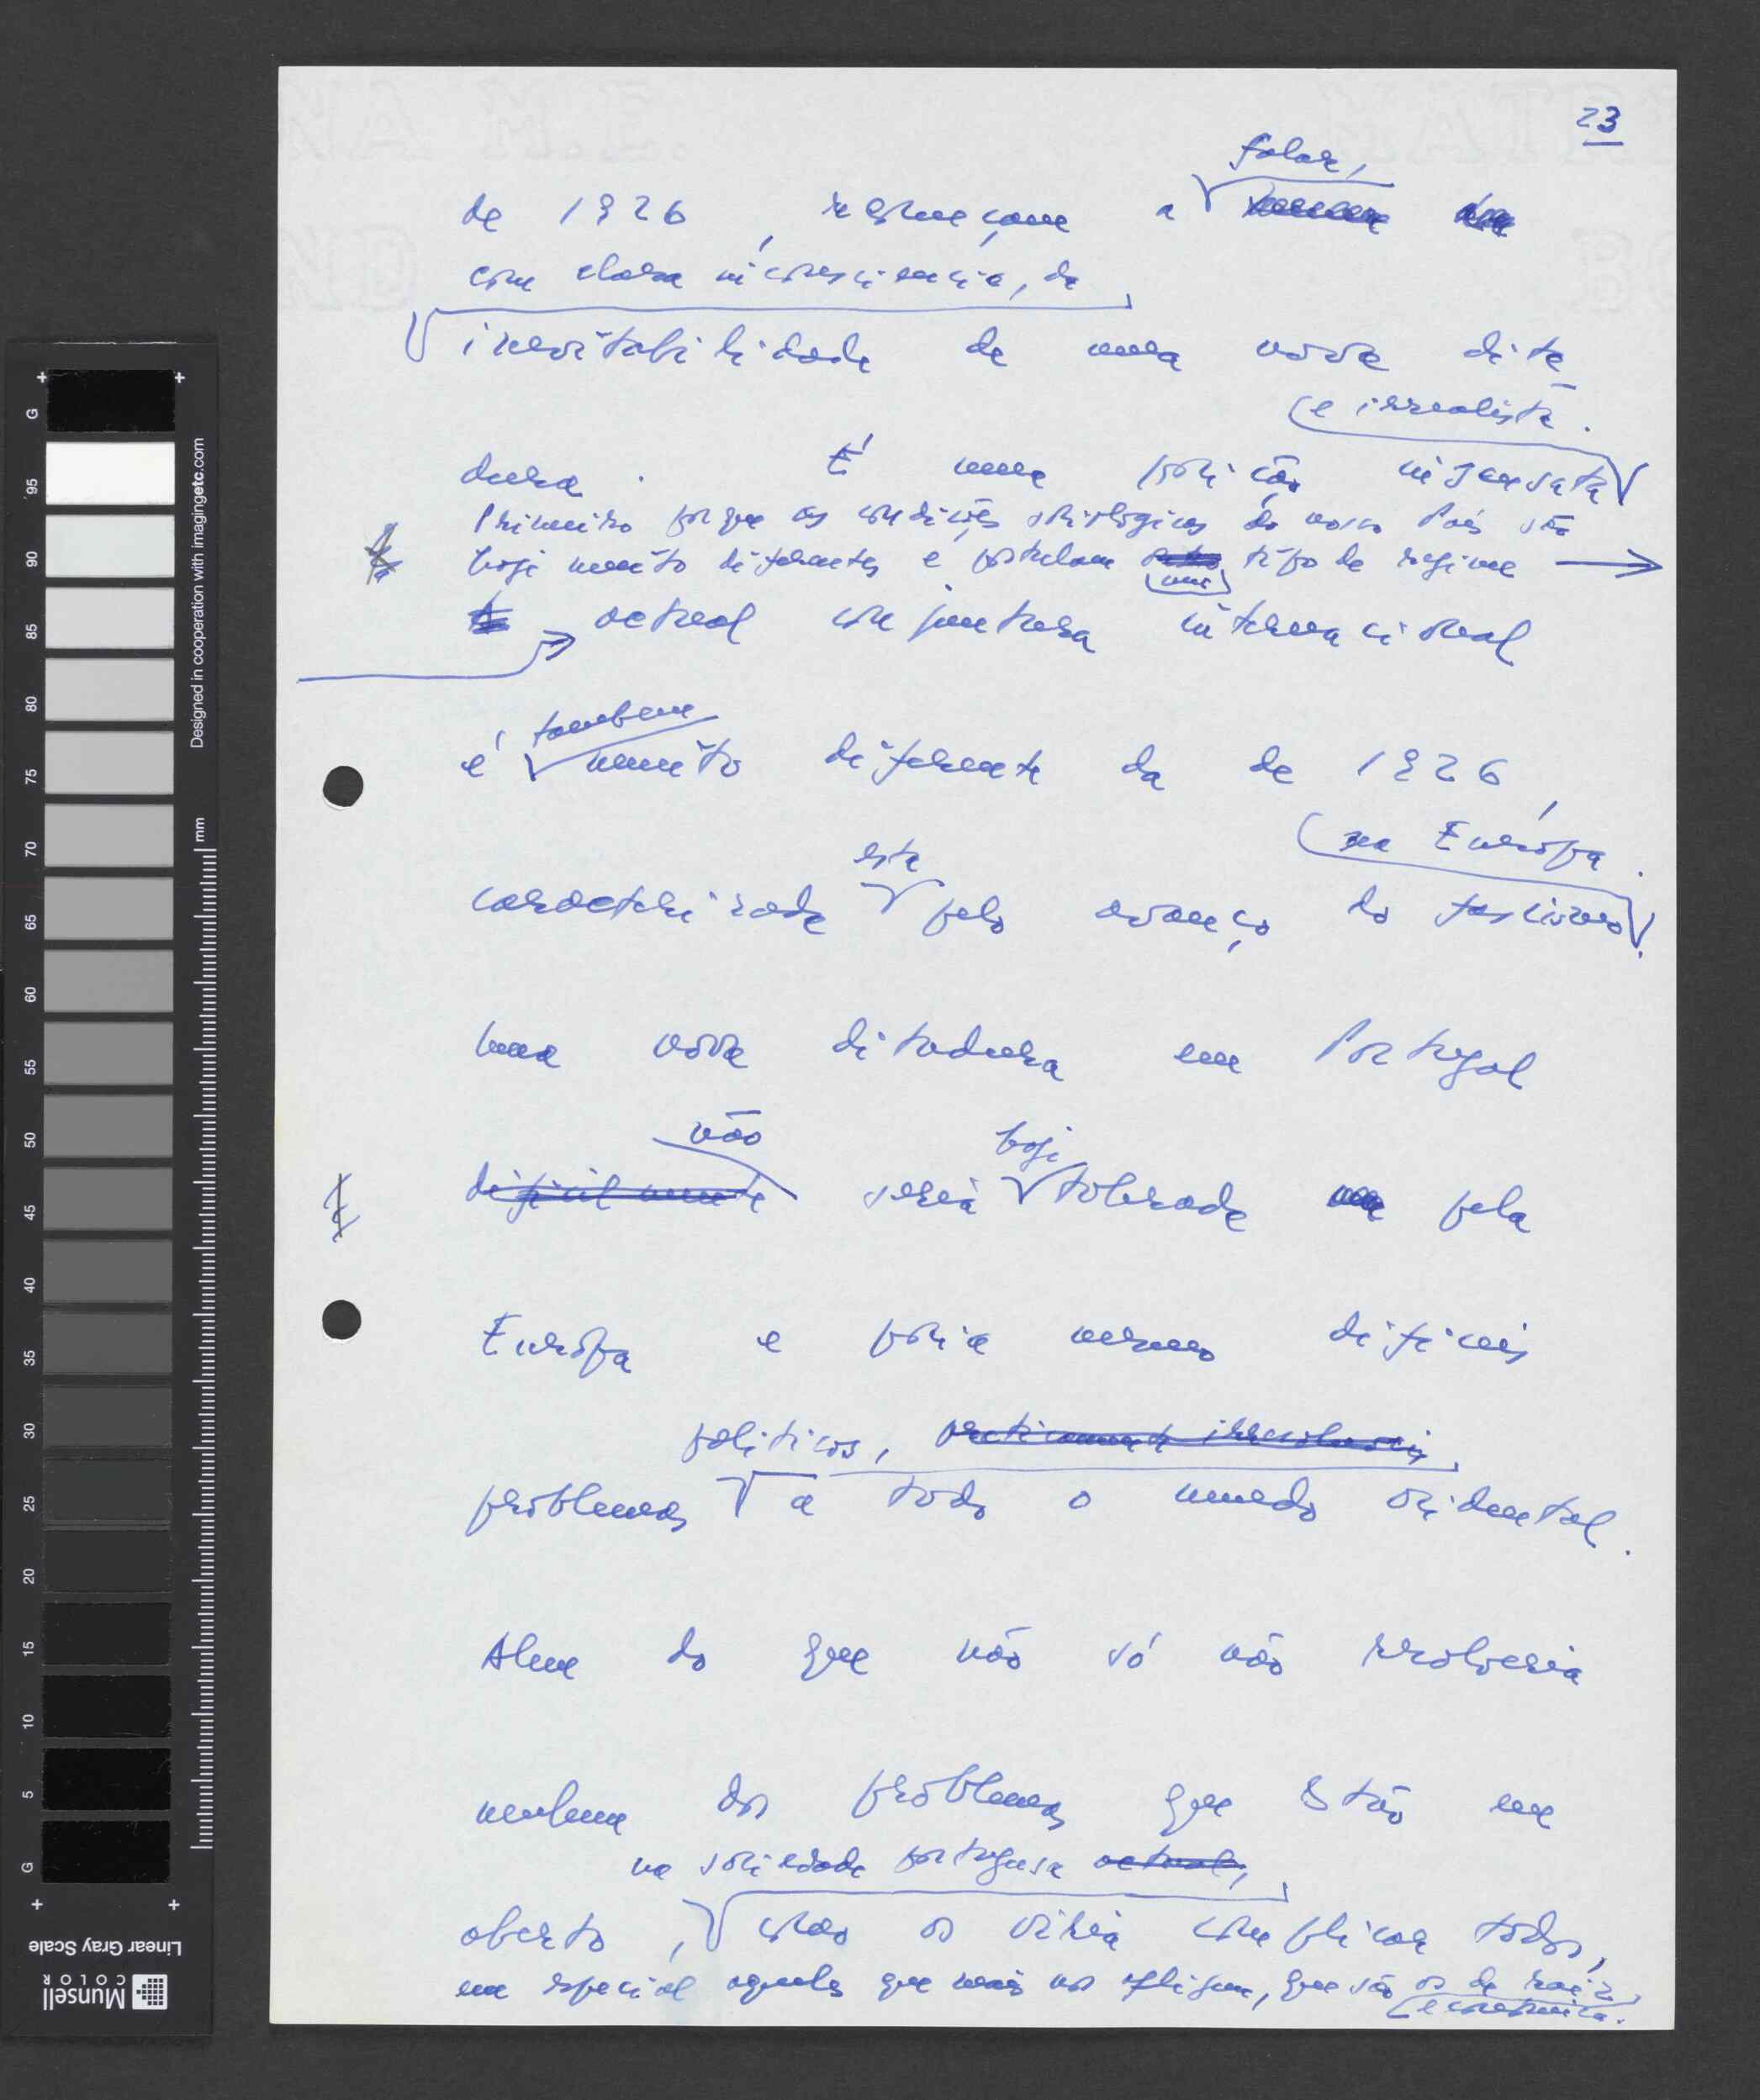 23
falar,
de 1926, recomeçam a
com clara inconsciência, da
inevitabilidade de uma nova dita-
e irrealista.
dura. É uma posição insensata
Primeiro porque as condições sociológicas do nosso País são
hoje muito diferentes e postulam outro tipo de regime
um
actual conjuntura internacional
também
é muito diferente da de 1926,
na Europa.
esta
caracterizada pelo avanço do fascismo
Uma nova ditadura em Portugal
não
hoje
dificilmente seria tolerada pela
Europa e poria mesmo difíceis
políticos, praticamente irresolúveis,
problemas a todo o mundo ocidental.
Alem do que não só não resolveria
nenhum dos problemas que estão em
na sociedade portuguesa actual,
aberto, como os viria complicar todos,
em especial aqueles que mais nos afligem, que são os de raiz
económica.
Designed in cooperation with imagingetc.com
mm
G 95 90 85 80 75 70 65 60 55 50 45 40 35 30 25 20 15 10 5 G
Linear Gray Scale
Munsell
COLOR